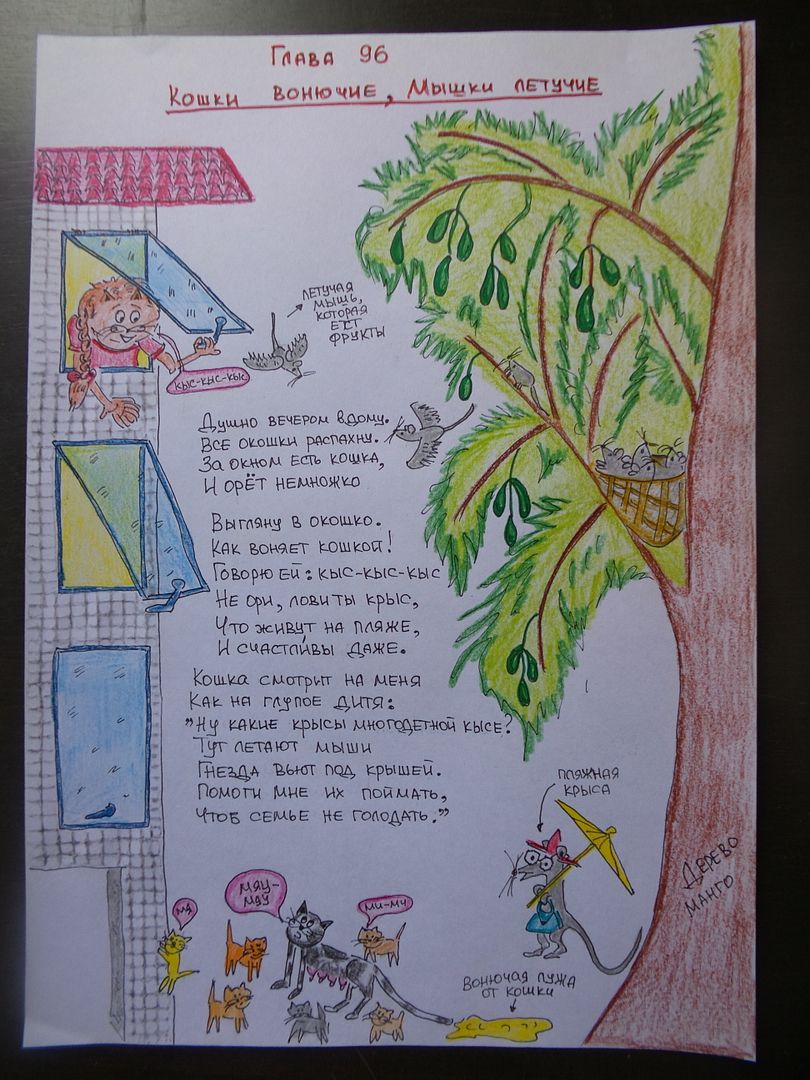 Глава 96
Кошки вонючие, Мышки летучие
Летучая
мышь,
которая
ест
фрукты
кыс-кыс-кыс
Душно вечером в дому.
Все окошки распахну.
За окном есть кошка,
И орёт немножко
Выгляну в окошко.
Как воняет кошкой!
Говорю ей: кыс-кыс-кыс
Не ори, лови ты крыс,
Что живут на пляже,
И счастливы даже.
Кошка смотрит на меня
Как на глупое дитя:
"Ну какие крысы многодетной кысе?
Тут летают мыши
Гнезда вьют под крышей.
Помоги мне их поймать,
Чтоб семье не голодать."
Пляжная
крыса
Дерево
манго
мя
мяу-
мяу
ми-ми
Вонючая лужа
от кошки